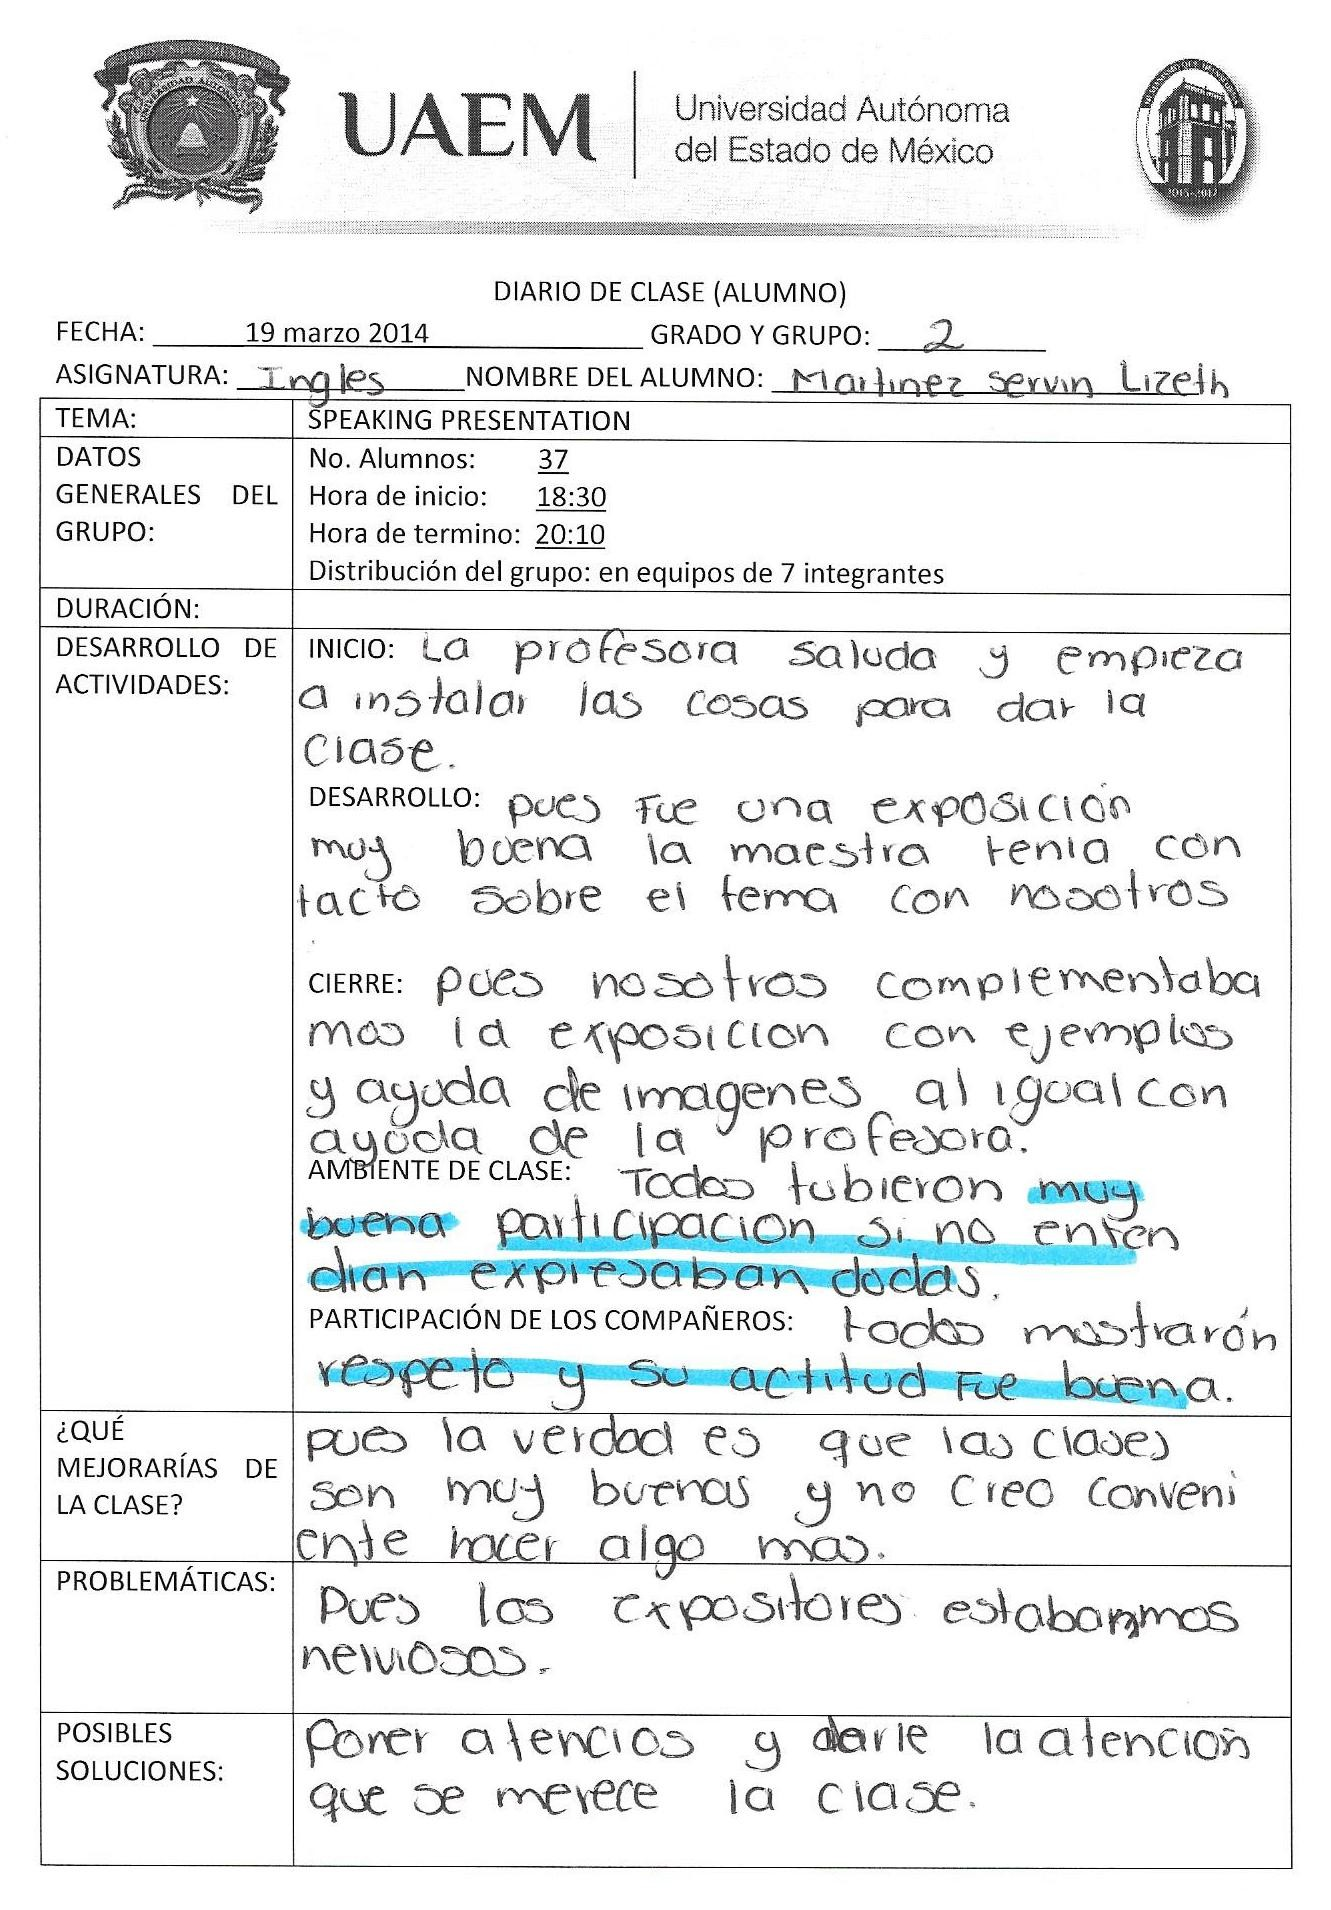 UAEM
Universidad Autónoma
del Estado de México
DIARIO DE CLASE (ALUMNO)
FECHA: 19 marzo 2014 GRADO Y GRUPO: 2
ASIGNATURA: Ingles NOMBRE DEL ALUMNO: Martinez Servin Lizeth
TEMA: SPEAKING PRESENTATION
DATOS GENERALES DEL GRUPO:
No. Alumnos: 37
Hora de inicio: 18:30
Hora de termino: 20:10
Distribución del grupo: en equipos de 7 integrantes
DURACIÓN:
DESARROLLO DE
ACTIVIDADES:
INICIO: La profesora saluda y empieza
a instalar las cosas para dar la
Clase.
DESARROLLO: pues Fue una exposición
muy buena la maestra tenia con
tacto sobre el tema con nosotros
CIERRE: pues nosotros complementaba
mos la exposicion con ejemplos
y ayuda de imagenes al igual con
ayuda de la profesora.
AMBIENTE DE CLASE: Todos tubieron muy
buena participacion si no enten
dian expresaban dudas.
PARTICIPACIÓN DE LOS COMPAÑEROS: todos mostrarón
respeto y su actitud Fue buena.
¿QUÉ
MEJORARÍAS DE
LA CLASE?
pues la verdad es que las clases
son muy buenas y no creo conveni
ente hacer algo mas.
PROBLEMÁTICAS:
Pues los expositores estabanmos
nerviosos.
POSIBLES
SOLUCIONES:
Poner atencios y darle la atención
que se merece la clase.